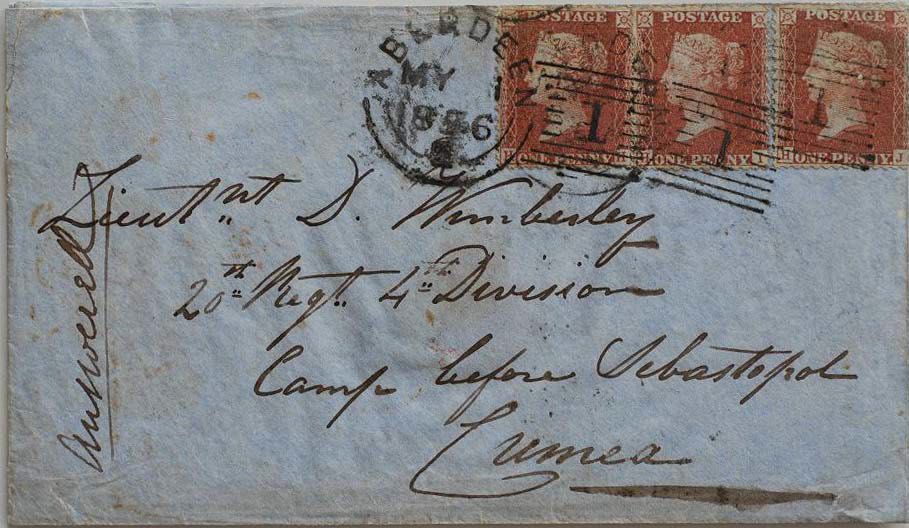 ABERDEEN
MY
1856
POSTAGE POSTAGE POSTAGE
1 1 1
H ONE PENNY H H ONE PENNY I H ONE PENNY J
Lieutnt D. Wimberley
20th Regt. 4th Division
Camp before Sebastopol
Crimea
Answered